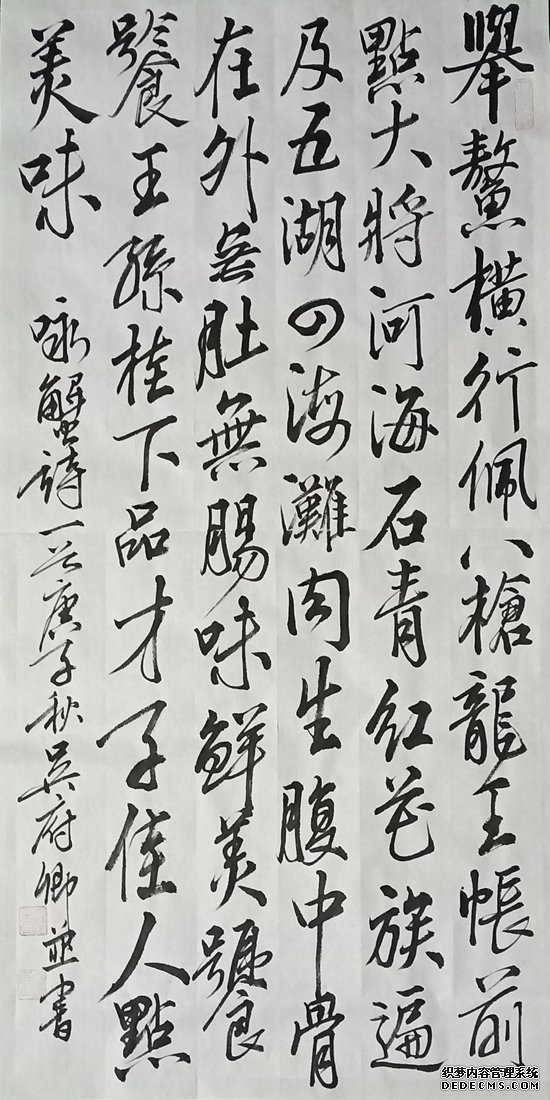 舉螯橫行佩八槍龍王帳前
點大將河海石青紅花族遍
及五湖四海灘肉生腹中骨
在外無肚無腸味鮮美饕
餮王孫桂下品才子佳人點
美味
咏蟹詩一首庚子秋吳府卿並書
织梦内容管理系统
DEDECMS.COM